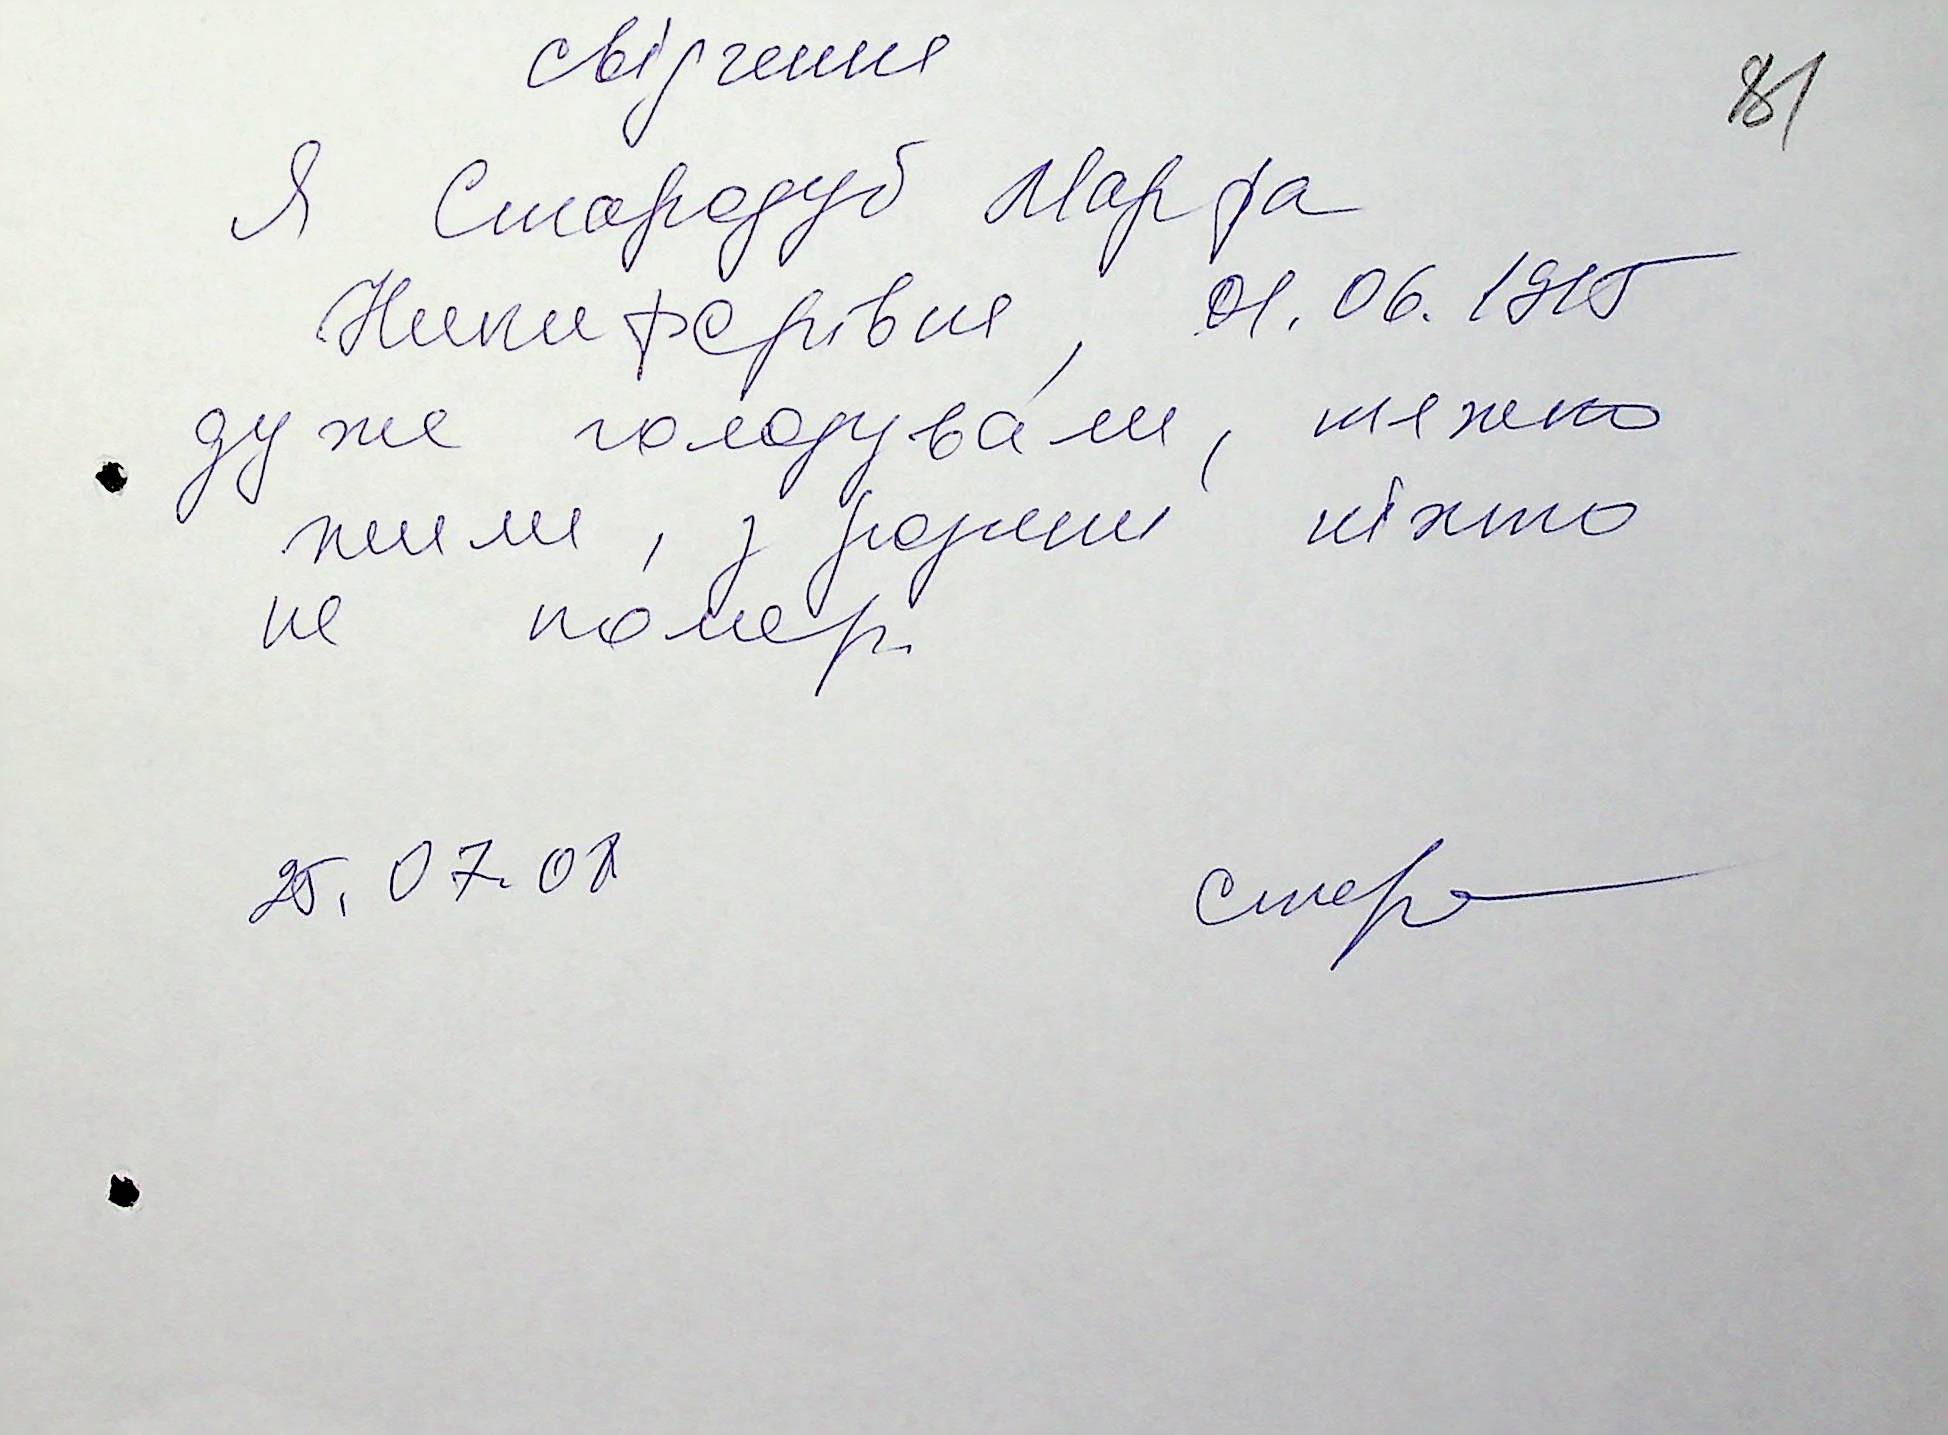 свідчення
81
Я Стародуб Марфа
Никифорівна, 01.06.1915
дуже голодували, тяжко
жили, з родини ніхто
не помер.
25.07.08
Стар